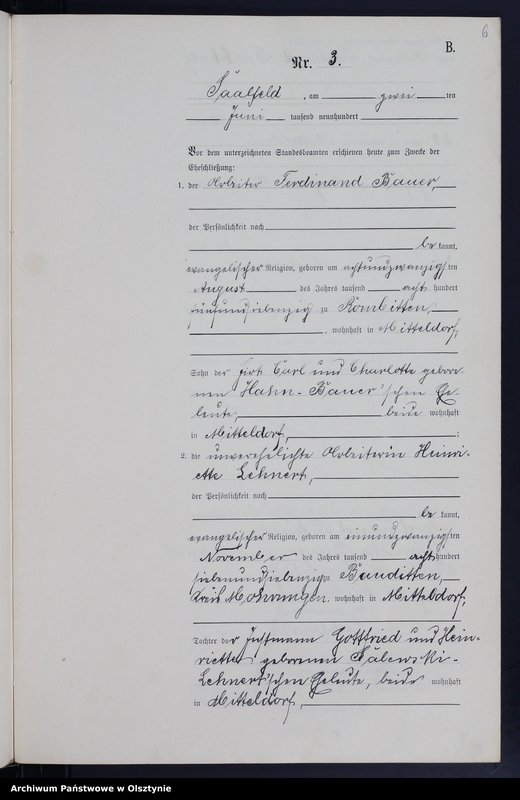 6
B.
Nr. 3.
Saalfeld, am zwei ten
Juni tausend neunhundert
Vor dem unterzeichneten Standesbeamten erschienen heute zum Zwecke der
Eheschließung:
1. der Arbeiter Ferdinand Bauer,
der Persönlichkeit nach
be kannt,
evangelischer Religion, geboren am achtundzwanzigsten
August des Jahres tausend acht hundert
fünfundsiebenzig zu Kömbitten,
, wohnhaft in Mitteldorf,
Sohn der Carl und Charlotte gebore-
nen Hahn-Bauer'schen Ehe-
leute, beide wohnhaft
in Mitteldorf, ;
2. die unverehelichte Arbeiterin Heinri-
ette Lehnert,
der Persönlichkeit nach
be kannt,
evangelischer Religion, geboren am einundzwanzigsten
November des Jahres tausend acht hundert
siebenundsiebenzig zu Bauditten,
Kreis Mohrungen, wohnhaft in Mitteldorf,
Tochter der Instmann Gottfried und Hein-
riette geborenen Salewski-
Lehnert'schen Eheleute, beide wohnhaft
in Mitteldorf,
Archiwum Państwowe w Olsztynie